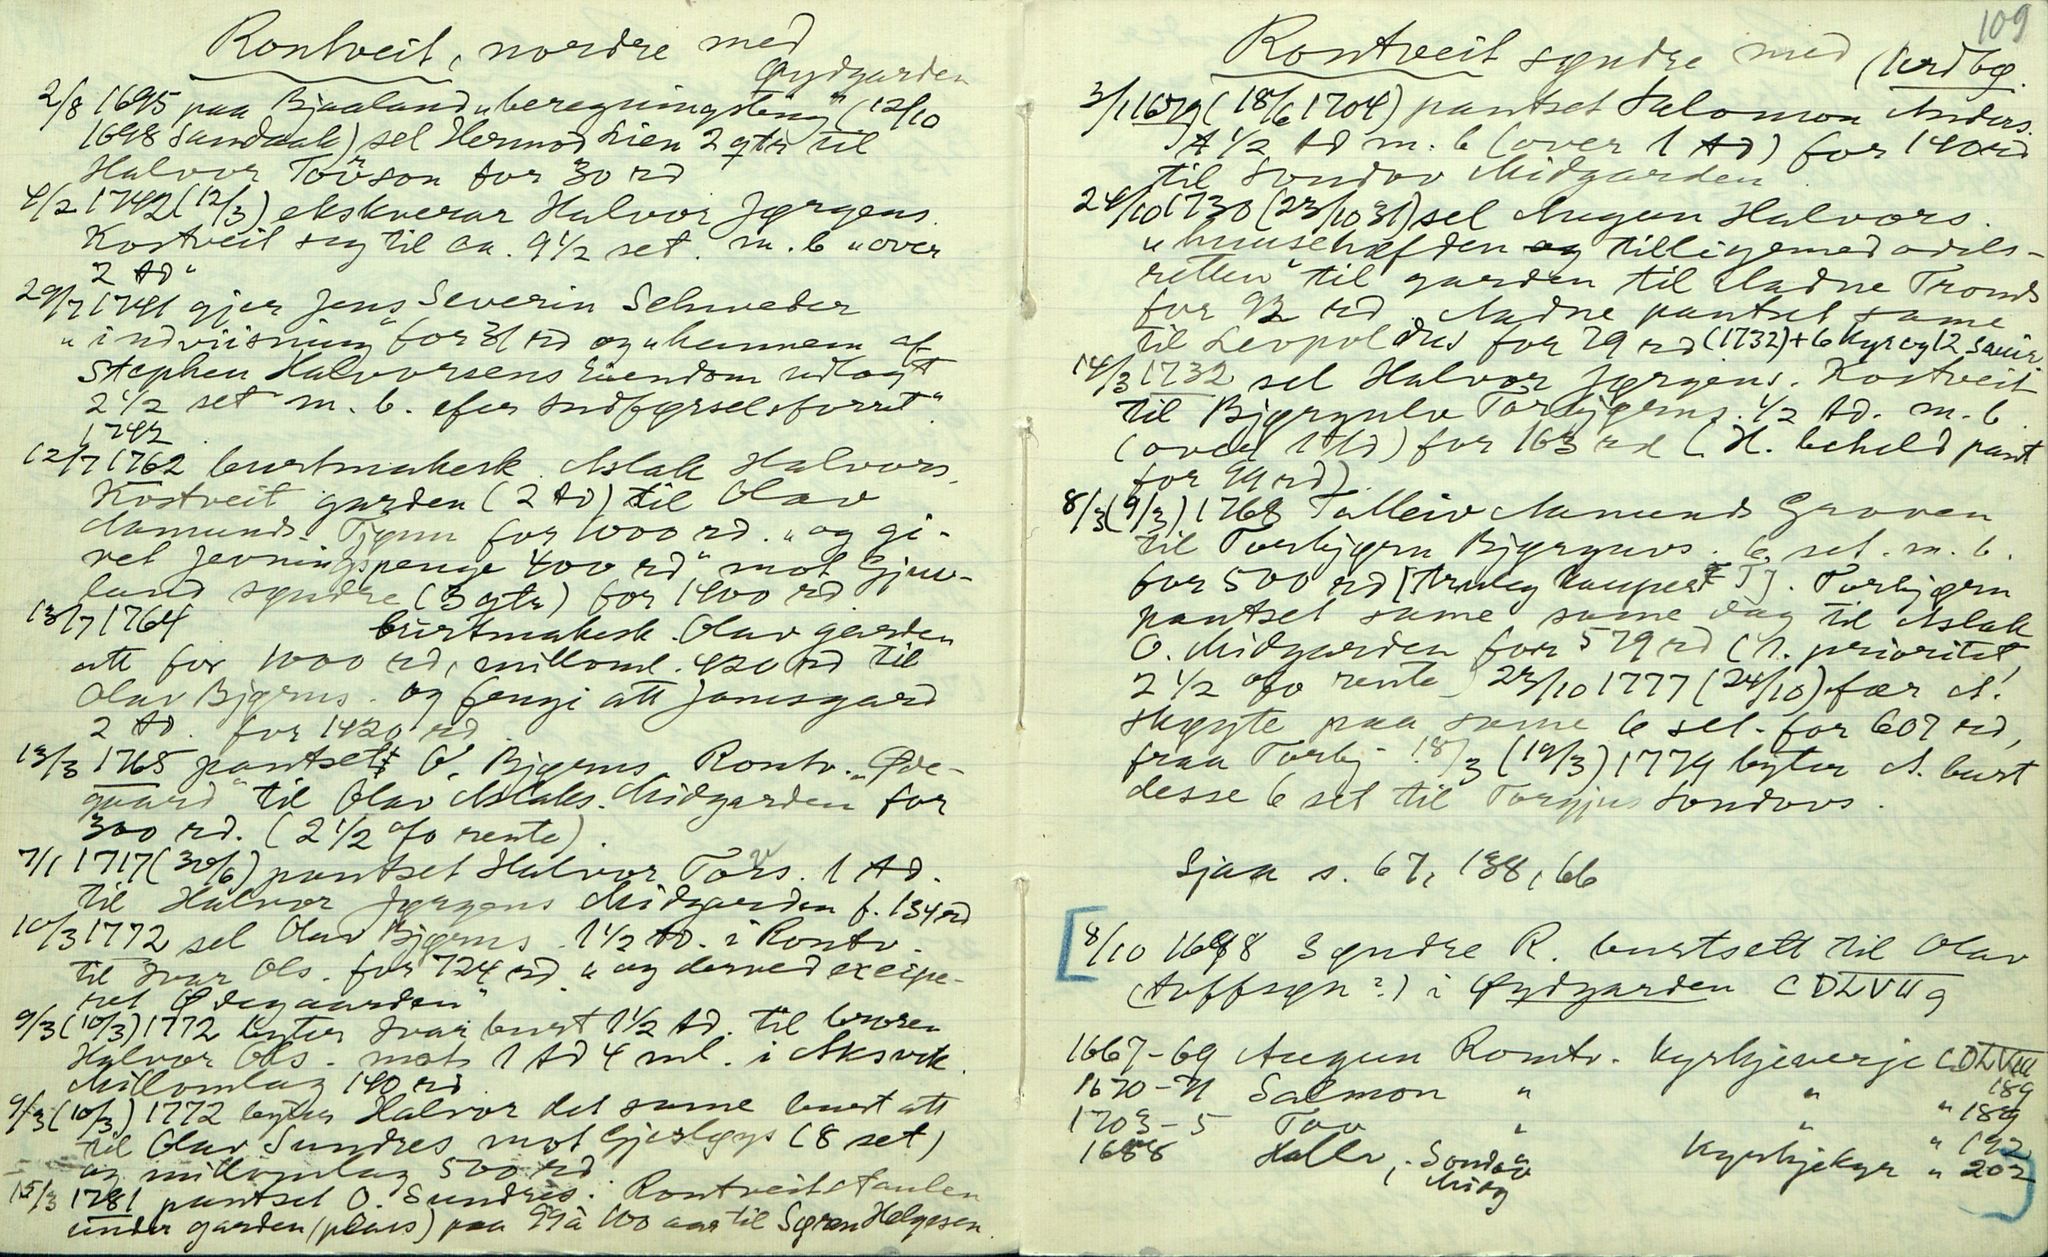 Rontveit, nordre med
Øydgarden
2/8 1695 paa Bjaaland "beregningsting" (12/10
1698 Sandauk) sel Hermod Lien 2 qtr til
Halvor Tovson for 30 rd
4/2 1742 (12/3) ekskverar Halvor Jørgens.
Kostveit seg til aa. 9 1/2 set. m. b "over
2 td"
29/7 1741 gjer Jens Severin Schweder
"indviisning" for 31 rd og "hannem af
Stephen Halvorsens Eiendom udlagt
2 1/2 set m. b. efter Indførselsforret"
1742
12/7 1762 burtmakesk. Aslak Halvors.
Kostveit garden (2 td) til Olav
Aamunds. Tjønn for 1000 rd. "og gi-
vet Jevningspenge 400 rd" mot Gjuv-
land syndre (3 qtr) for 1400 rd.
13/7 1764 burtmakesk. Olav garden
att for 1000 rd, milloml. 420 rd til
Olav Bjørns. og fengi att Jamsgard
2 td. for 1420 rd.
13/3 1765 pantset O. Bjørns Rontv. "Øde-
gaard" til Olav Aslaks. Midgarden for
300 rd. (2 1/2 o/o rente)
7/1 1717 (30/6) pantset Halvor Tovs. 1 td.
til Halvor Jørgens Midgarden f. 134 rd
10/3 1772 sel Olav Bjørns. 1 1/2 td. i Rontv.
til Ivar Ols. for 724 rd "og derved excipe-
ret Ødegaarden"
9/3 (10/3) 1772 byter Ivar burt 1 1/2 td. til broren
Halvor Ols. mot 1 td 4 ml. i Aksvik.
Millomlag 140 rd
9/3 (10/3) 1772 byter Halvor det same burt att
til Olav Sundres mot Gjersløys (8 set)
og millomlag 500 rd
15/3 1781 pantset O. Sundres. Rontveitstaulen
under garden (plais) paa 99 à 100 aar til Søren Helgesen
109
Rontveit syndre med (Jordbg.
3/1 1679 (18/6 1704) pantset Salomon Anders.
1/2 td m. b (over 1 td) for 140 rd
til Sondov Midgarden.
24/10 1730 (23/10 31) sel Augun Halvors.
"huusehæfden og tilligemed odels-
retten" til garden til Aadne Tronds
for 92 rd. Aadne pantset same
til Leopoldus for 79 rd (1732) + 6 kyr og 12 sauir
14/3 1732 sel Halvor Jørgens. Kostveit
til Bjørgulv Torbjørns. 1/2 td. m. b
(over 1 td) for 163 rd (H. beheld pant
for 99 rd).
8/3 (9/3) 1768 Talleiv Aamunds Groven
til Torbjørn Bjørguvs. 6 set. m. b.
for 500 rd [truleg kaupet]. Torbjørn
pantset same same dag til Aslak
O. Midgarden for 579 rd (1. prioritet,
2 1/2 o/o rente) 23/10 1777 (24/10) fær A.
skøyte paa same 6 set. for 607 rd,
fraa Torbj. 18/3 (19/3) 1779 byter A. burt
desse 6 set til Torgjus Sondovs.
Sjaa s. 67, 138, 66
[8/10 1698 Syndre R. burtsett til Olav
(Aoffsøn?) i Øydgarden CDLVII 9
1667-69 Augun Rontv. Kyrkjeverje CDLVIII
189
1670-71 Salmon " " " 189
1703-5 Tov " " " 192
1688 Hallv. Sondov Kyrkjekyr " 202]
Midg